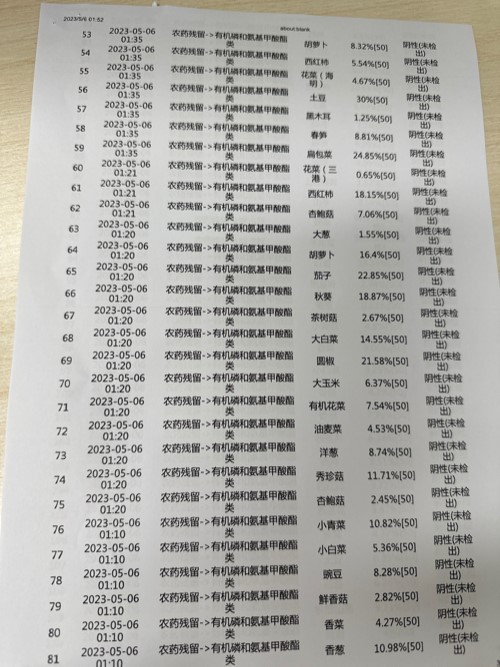 2023/5/6 01:52
about:blank
53 2023-05-06 01:35 农药残留->有机磷和氨基甲酸酯类 胡萝卜 8.32%[50] 阴性(未检出)
54 2023-05-06 01:35 农药残留->有机磷和氨基甲酸酯类 西红柿 5.54%[50] 阴性(未检出)
55 2023-05-06 01:35 农药残留->有机磷和氨基甲酸酯类 花菜（海明） 4.67%[50] 阴性(未检出)
56 2023-05-06 01:35 农药残留->有机磷和氨基甲酸酯类 土豆 30%[50] 阴性(未检出)
57 2023-05-06 01:35 农药残留->有机磷和氨基甲酸酯类 黑木耳 1.25%[50] 阴性(未检出)
58 2023-05-06 01:35 农药残留->有机磷和氨基甲酸酯类 春笋 8.81%[50] 阴性(未检出)
59 2023-05-06 01:35 农药残留->有机磷和氨基甲酸酯类 扁包菜 24.85%[50] 阴性(未检出)
60 2023-05-06 01:21 农药残留->有机磷和氨基甲酸酯类 花菜（三港） 0.65%[50] 阴性(未检出)
61 2023-05-06 01:21 农药残留->有机磷和氨基甲酸酯类 西红柿 18.15%[50] 阴性(未检出)
62 2023-05-06 01:21 农药残留->有机磷和氨基甲酸酯类 杏鲍菇 7.06%[50] 阴性(未检出)
63 2023-05-06 01:20 农药残留->有机磷和氨基甲酸酯类 大葱 1.55%[50] 阴性(未检出)
64 2023-05-06 01:20 农药残留->有机磷和氨基甲酸酯类 胡萝卜 16.4%[50] 阴性(未检出)
65 2023-05-06 01:20 农药残留->有机磷和氨基甲酸酯类 茄子 22.85%[50] 阴性(未检出)
66 2023-05-06 01:20 农药残留->有机磷和氨基甲酸酯类 秋葵 18.87%[50] 阴性(未检出)
67 2023-05-06 01:20 农药残留->有机磷和氨基甲酸酯类 茶树菇 2.67%[50] 阴性(未检出)
68 2023-05-06 01:20 农药残留->有机磷和氨基甲酸酯类 大白菜 14.55%[50] 阴性(未检出)
69 2023-05-06 01:20 农药残留->有机磷和氨基甲酸酯类 圆椒 21.58%[50] 阴性(未检出)
70 2023-05-06 01:20 农药残留->有机磷和氨基甲酸酯类 大玉米 6.37%[50] 阴性(未检出)
71 2023-05-06 01:20 农药残留->有机磷和氨基甲酸酯类 有机花菜 7.54%[50] 阴性(未检出)
72 2023-05-06 01:20 农药残留->有机磷和氨基甲酸酯类 油麦菜 4.53%[50] 阴性(未检出)
73 2023-05-06 01:20 农药残留->有机磷和氨基甲酸酯类 洋葱 8.74%[50] 阴性(未检出)
74 2023-05-06 01:20 农药残留->有机磷和氨基甲酸酯类 秀珍菇 11.71%[50] 阴性(未检出)
75 2023-05-06 01:20 农药残留->有机磷和氨基甲酸酯类 杏鲍菇 2.45%[50] 阴性(未检出)
76 2023-05-06 01:10 农药残留->有机磷和氨基甲酸酯类 小青菜 10.82%[50] 阴性(未检出)
77 2023-05-06 01:10 农药残留->有机磷和氨基甲酸酯类 小白菜 5.36%[50] 阴性(未检出)
78 2023-05-06 01:10 农药残留->有机磷和氨基甲酸酯类 豌豆 8.28%[50] 阴性(未检出)
79 2023-05-06 01:10 农药残留->有机磷和氨基甲酸酯类 鲜香菇 2.82%[50] 阴性(未检出)
80 2023-05-06 01:10 农药残留->有机磷和氨基甲酸酯类 香菜 4.27%[50] 阴性(未检出)
81 2023-05-06 01:10 农药残留->有机磷和氨基甲酸酯类 香葱 10.98%[50] 阴性(未检出)